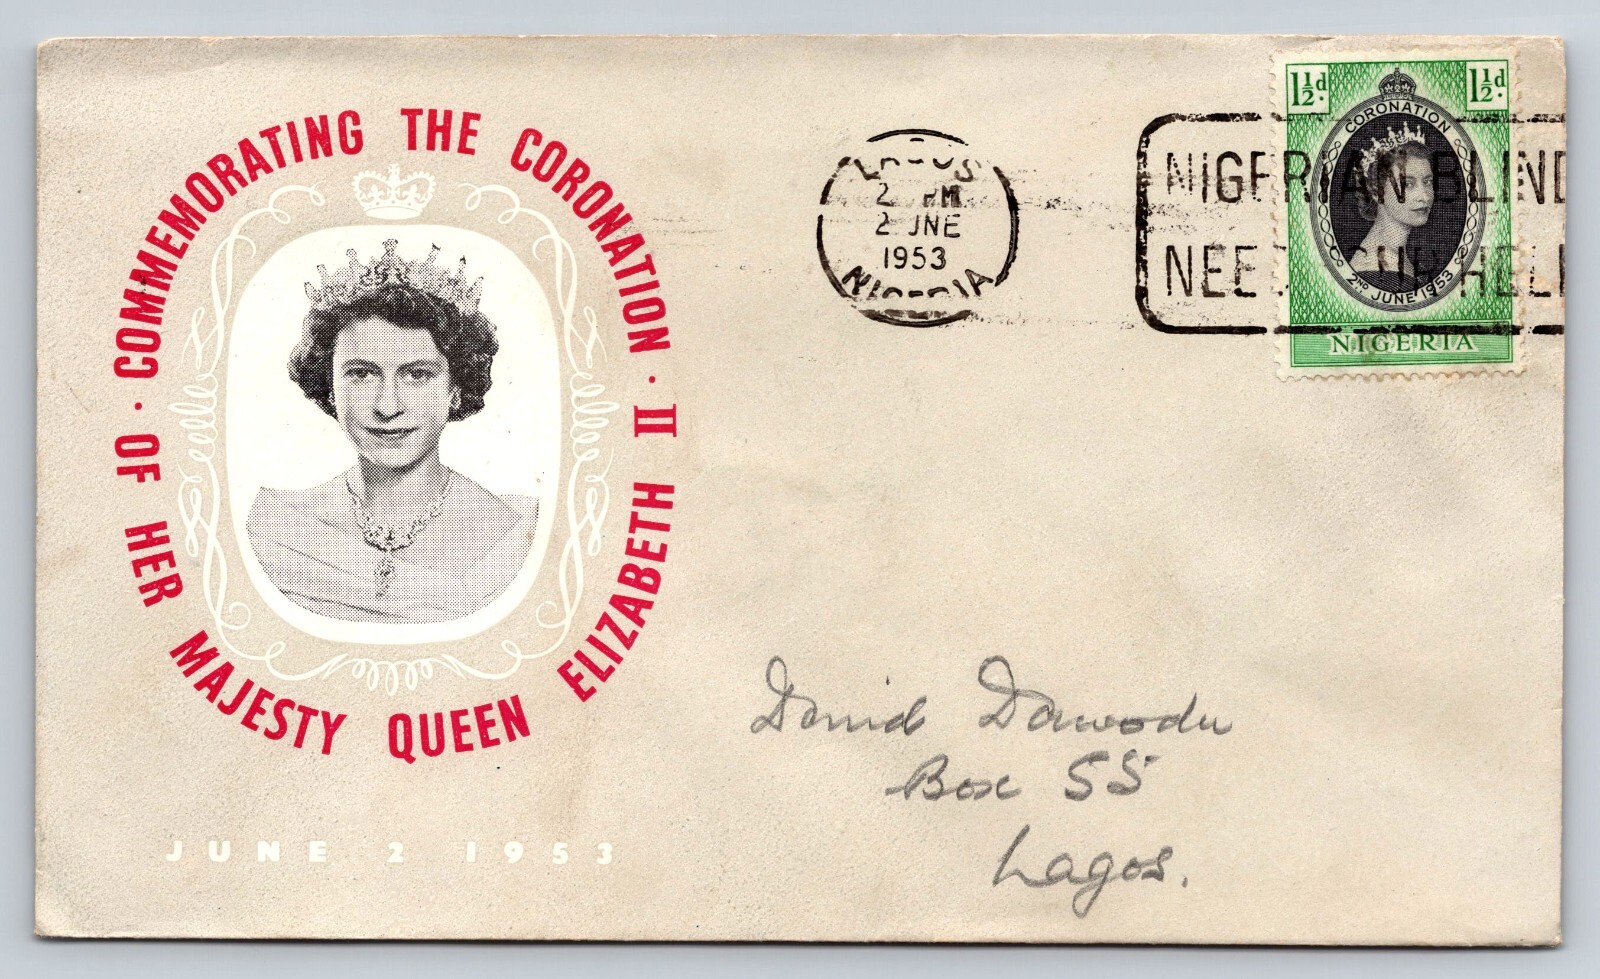 COMMEMORATING THE CORONATION · OF HER MAJESTY QUEEN ELIZABETH II ·
JUNE 2 1953
LAGOS
2 PM
2 JNE
1953
NIGERIA
NIGERIAN BLIND
NEED YOUR HELP
1½d. 1½d.
CORONATION
2ND JUNE 1953
NIGERIA
David Dawodu
Box 55
Lagos.